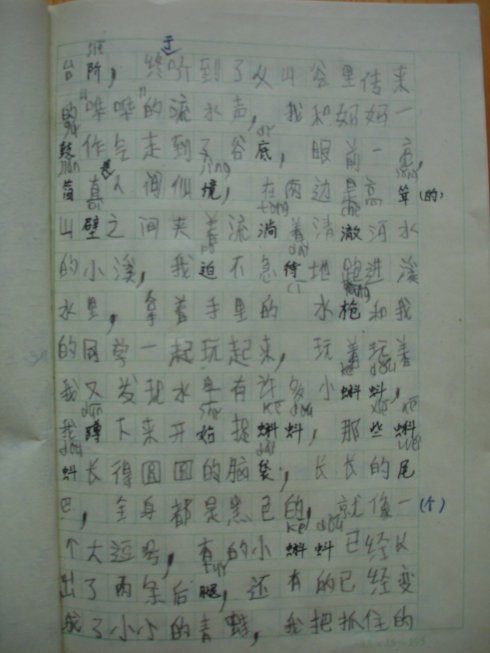 台阶，终于听到了从山谷里传来
的"哗哗"的流水声，我和好好一
鼓作气走到了谷底，眼前一亮，
简真人间仙境，在两边是高耸(的)
山壁之间夹着流淌着清澈河水
的小溪，我迫不急待地跑进溪
水里，拿着手里的水枪和我
的同学一起玩起来，玩着玩着
我又发现水里有许多小蝌蚪，
我蹲下来开始捉蝌蚪，那些蝌
蚪长得圆圆的脑袋，长长的尾
巴，全身都是黑色的，就像一(个)
个大逗号，有的小蝌蚪已经长
出了两条后腿，还有的已经变
成了小小的青蛙，我把抓住的